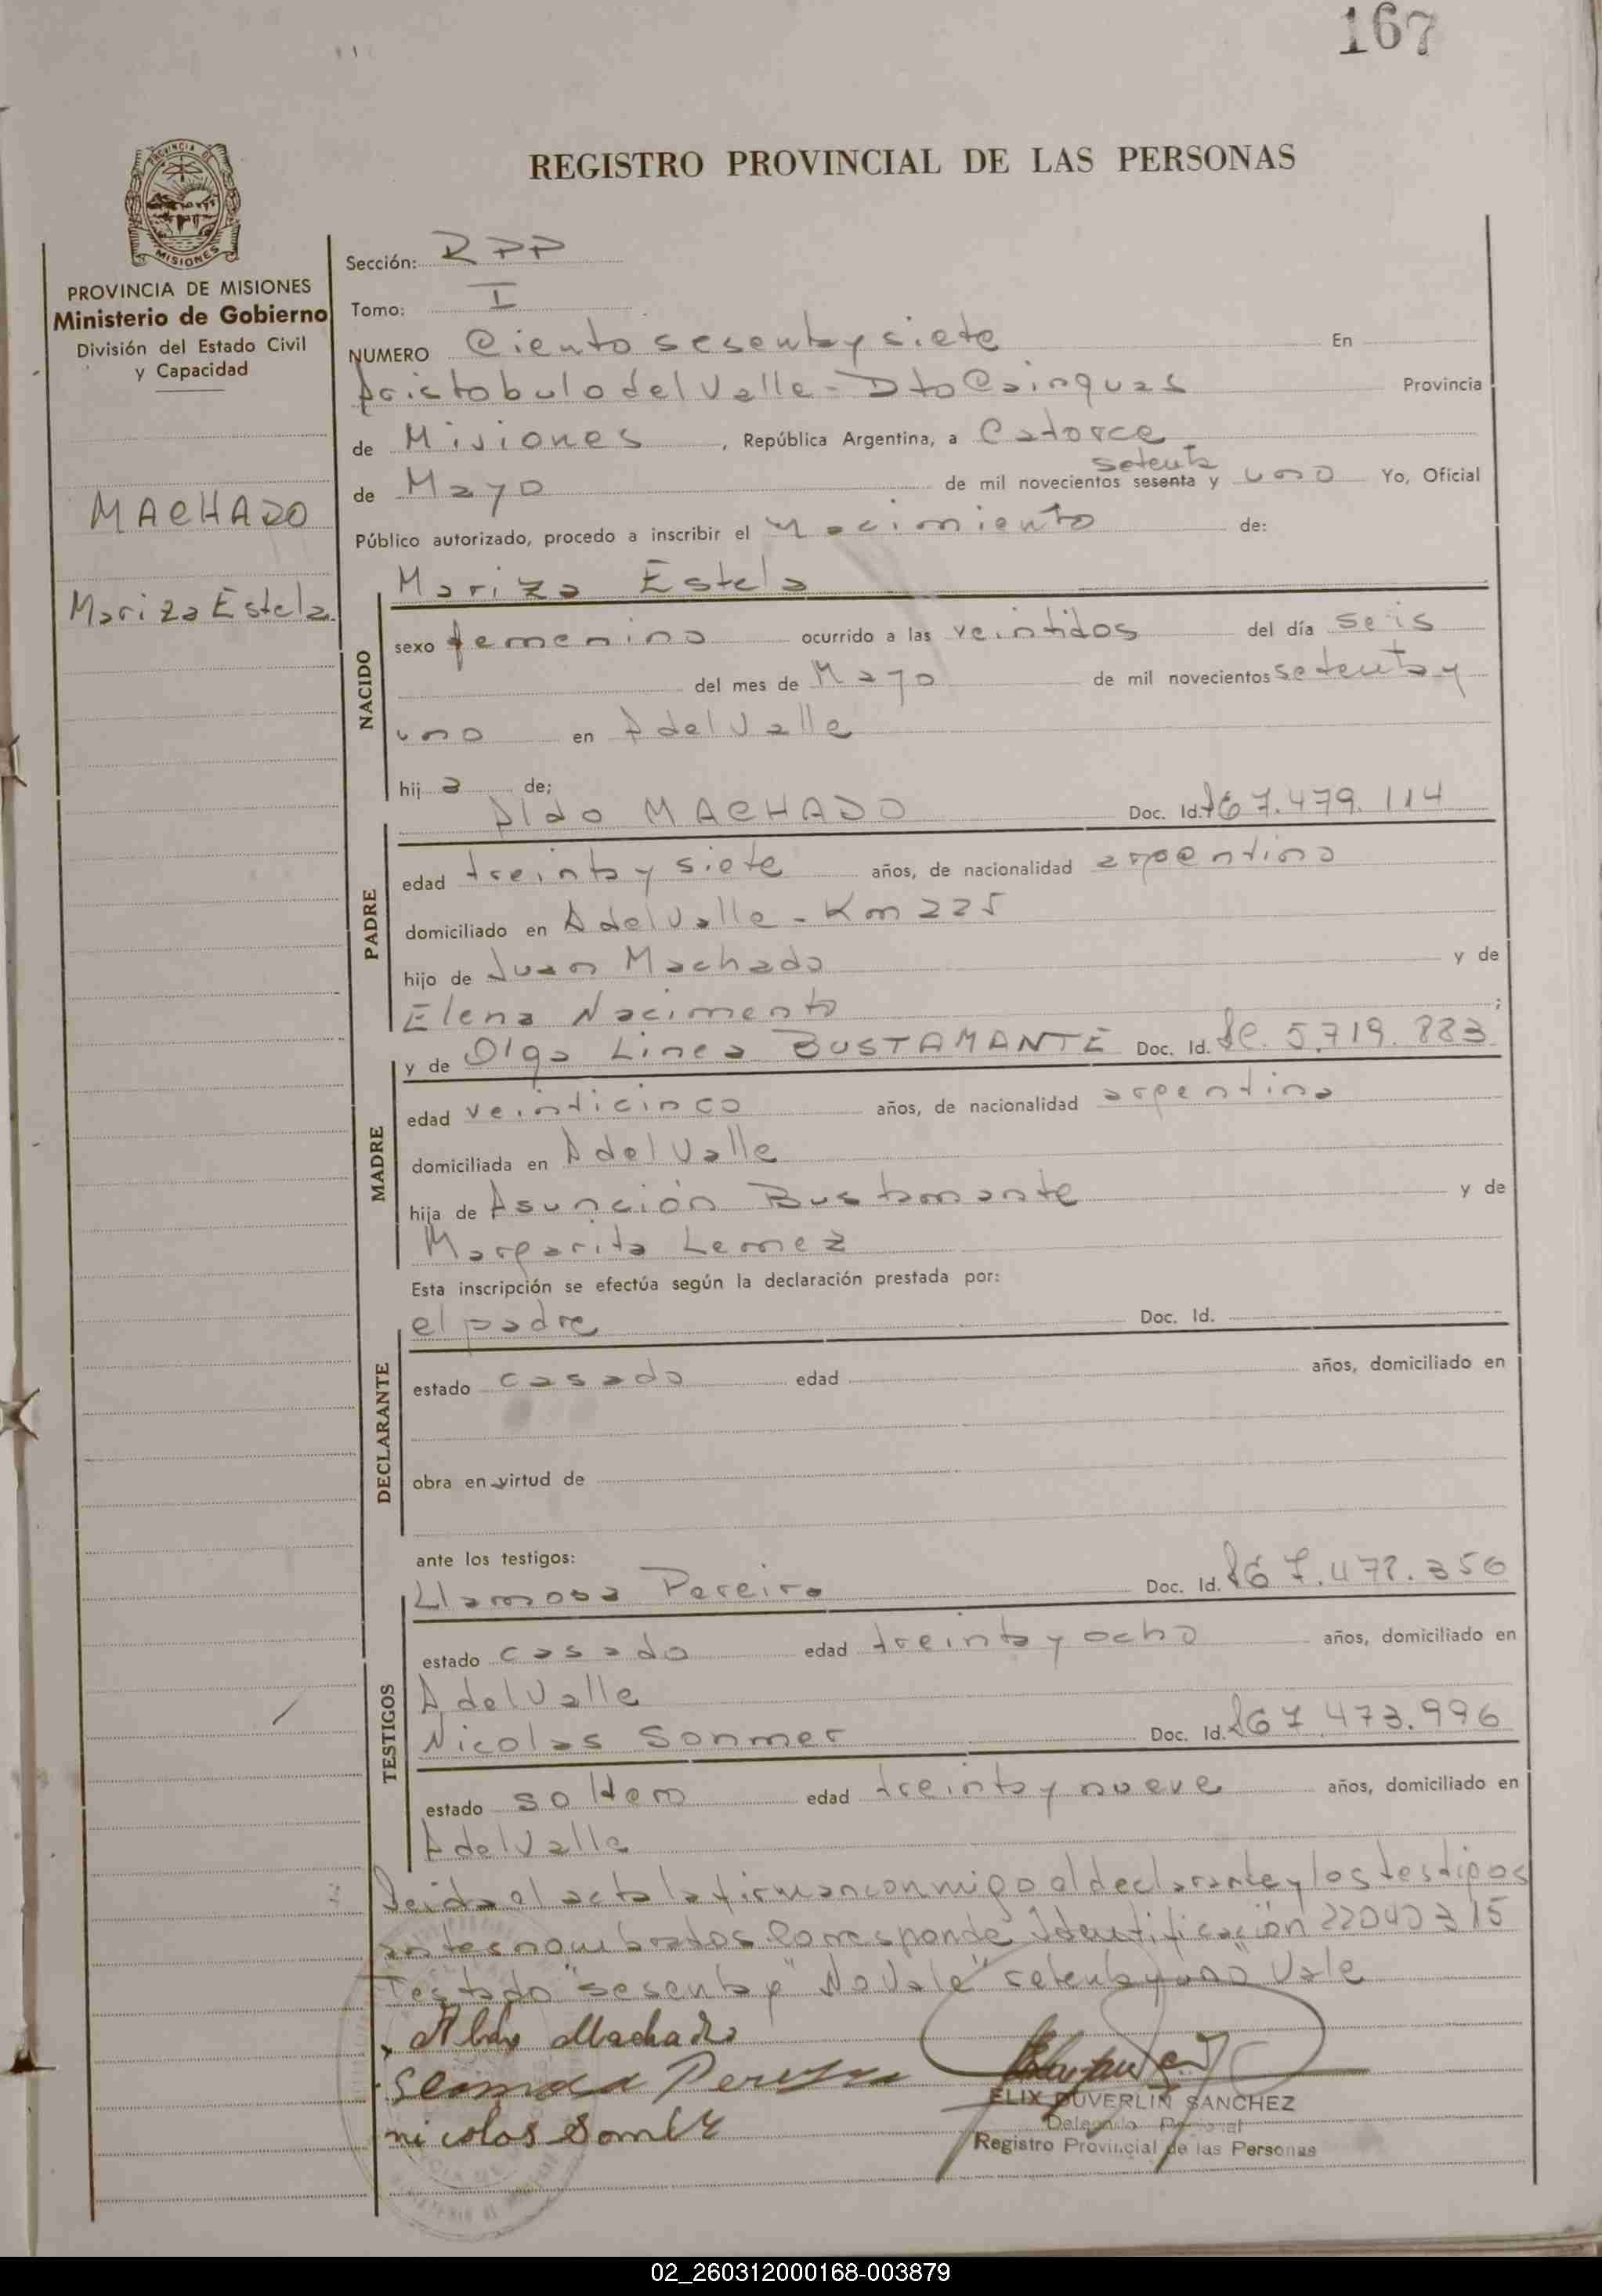 167
REGISTRO PROVINCIAL DE LAS PERSONAS
PROVINCIA DE MISIONES
Ministerio de Gobierno
División del Estado Civil
y Capacidad
MACHADO
Mariza Estela
Sección: RPP
Tomo: I
NUMERO Ciento sesenta y siete En
Aristobulo del Valle - Dto Cainguas Provincia
de Misiones, República Argentina, a Catorce
setenta
de Mayo de mil novecientos sesenta y uno Yo, Oficial
Público autorizado, procedo a inscribir el Nacimiento de:
Mariza Estela
NACIDO
sexo femenino ocurrido a las veintidos del día seis
del mes de Mayo de mil novecientos setenta y
uno en A del Valle
hij a de;
PADRE
Aldo MACHADO Doc. Id. 7.479.114
edad treinta y siete años, de nacionalidad argentina
domiciliado en A del Valle - Km 225
hijo de Juan Machado y de
Elena Nacimento ;
MADRE
y de Olga Linea BUSTAMANTE Doc. Id. LC. 5.719.883
edad veinticinco años, de nacionalidad argentina
domiciliada en A del Valle
hija de Asunción Bustamante y de
Margarita Lemez
Esta inscripción se efectúa según la declaración prestada por:
DECLARANTE
el padre Doc. Id.
estado casado edad años, domiciliado en
obra en virtud de
ante los testigos:
TESTIGOS
Llamosa Pereira Doc. Id. 7.478.356
estado casado edad treinta y ocho años, domiciliado en
A del Valle
Nicolas Sonmer Doc. Id. 7.473.996
estado soltero edad treinta y nueve años, domiciliado en
A del Valle
Leida el acta la firman conmigo el declarante y los testigos
antes nombrados Corresponde Identificación 22040315
Testado "sesenta y" No Vale "setenta y uno" Vale
Machado
nicolas
ELIX DUVERLIN SANCHEZ
Registro Provincial de las Personas
02_260312000168-003879